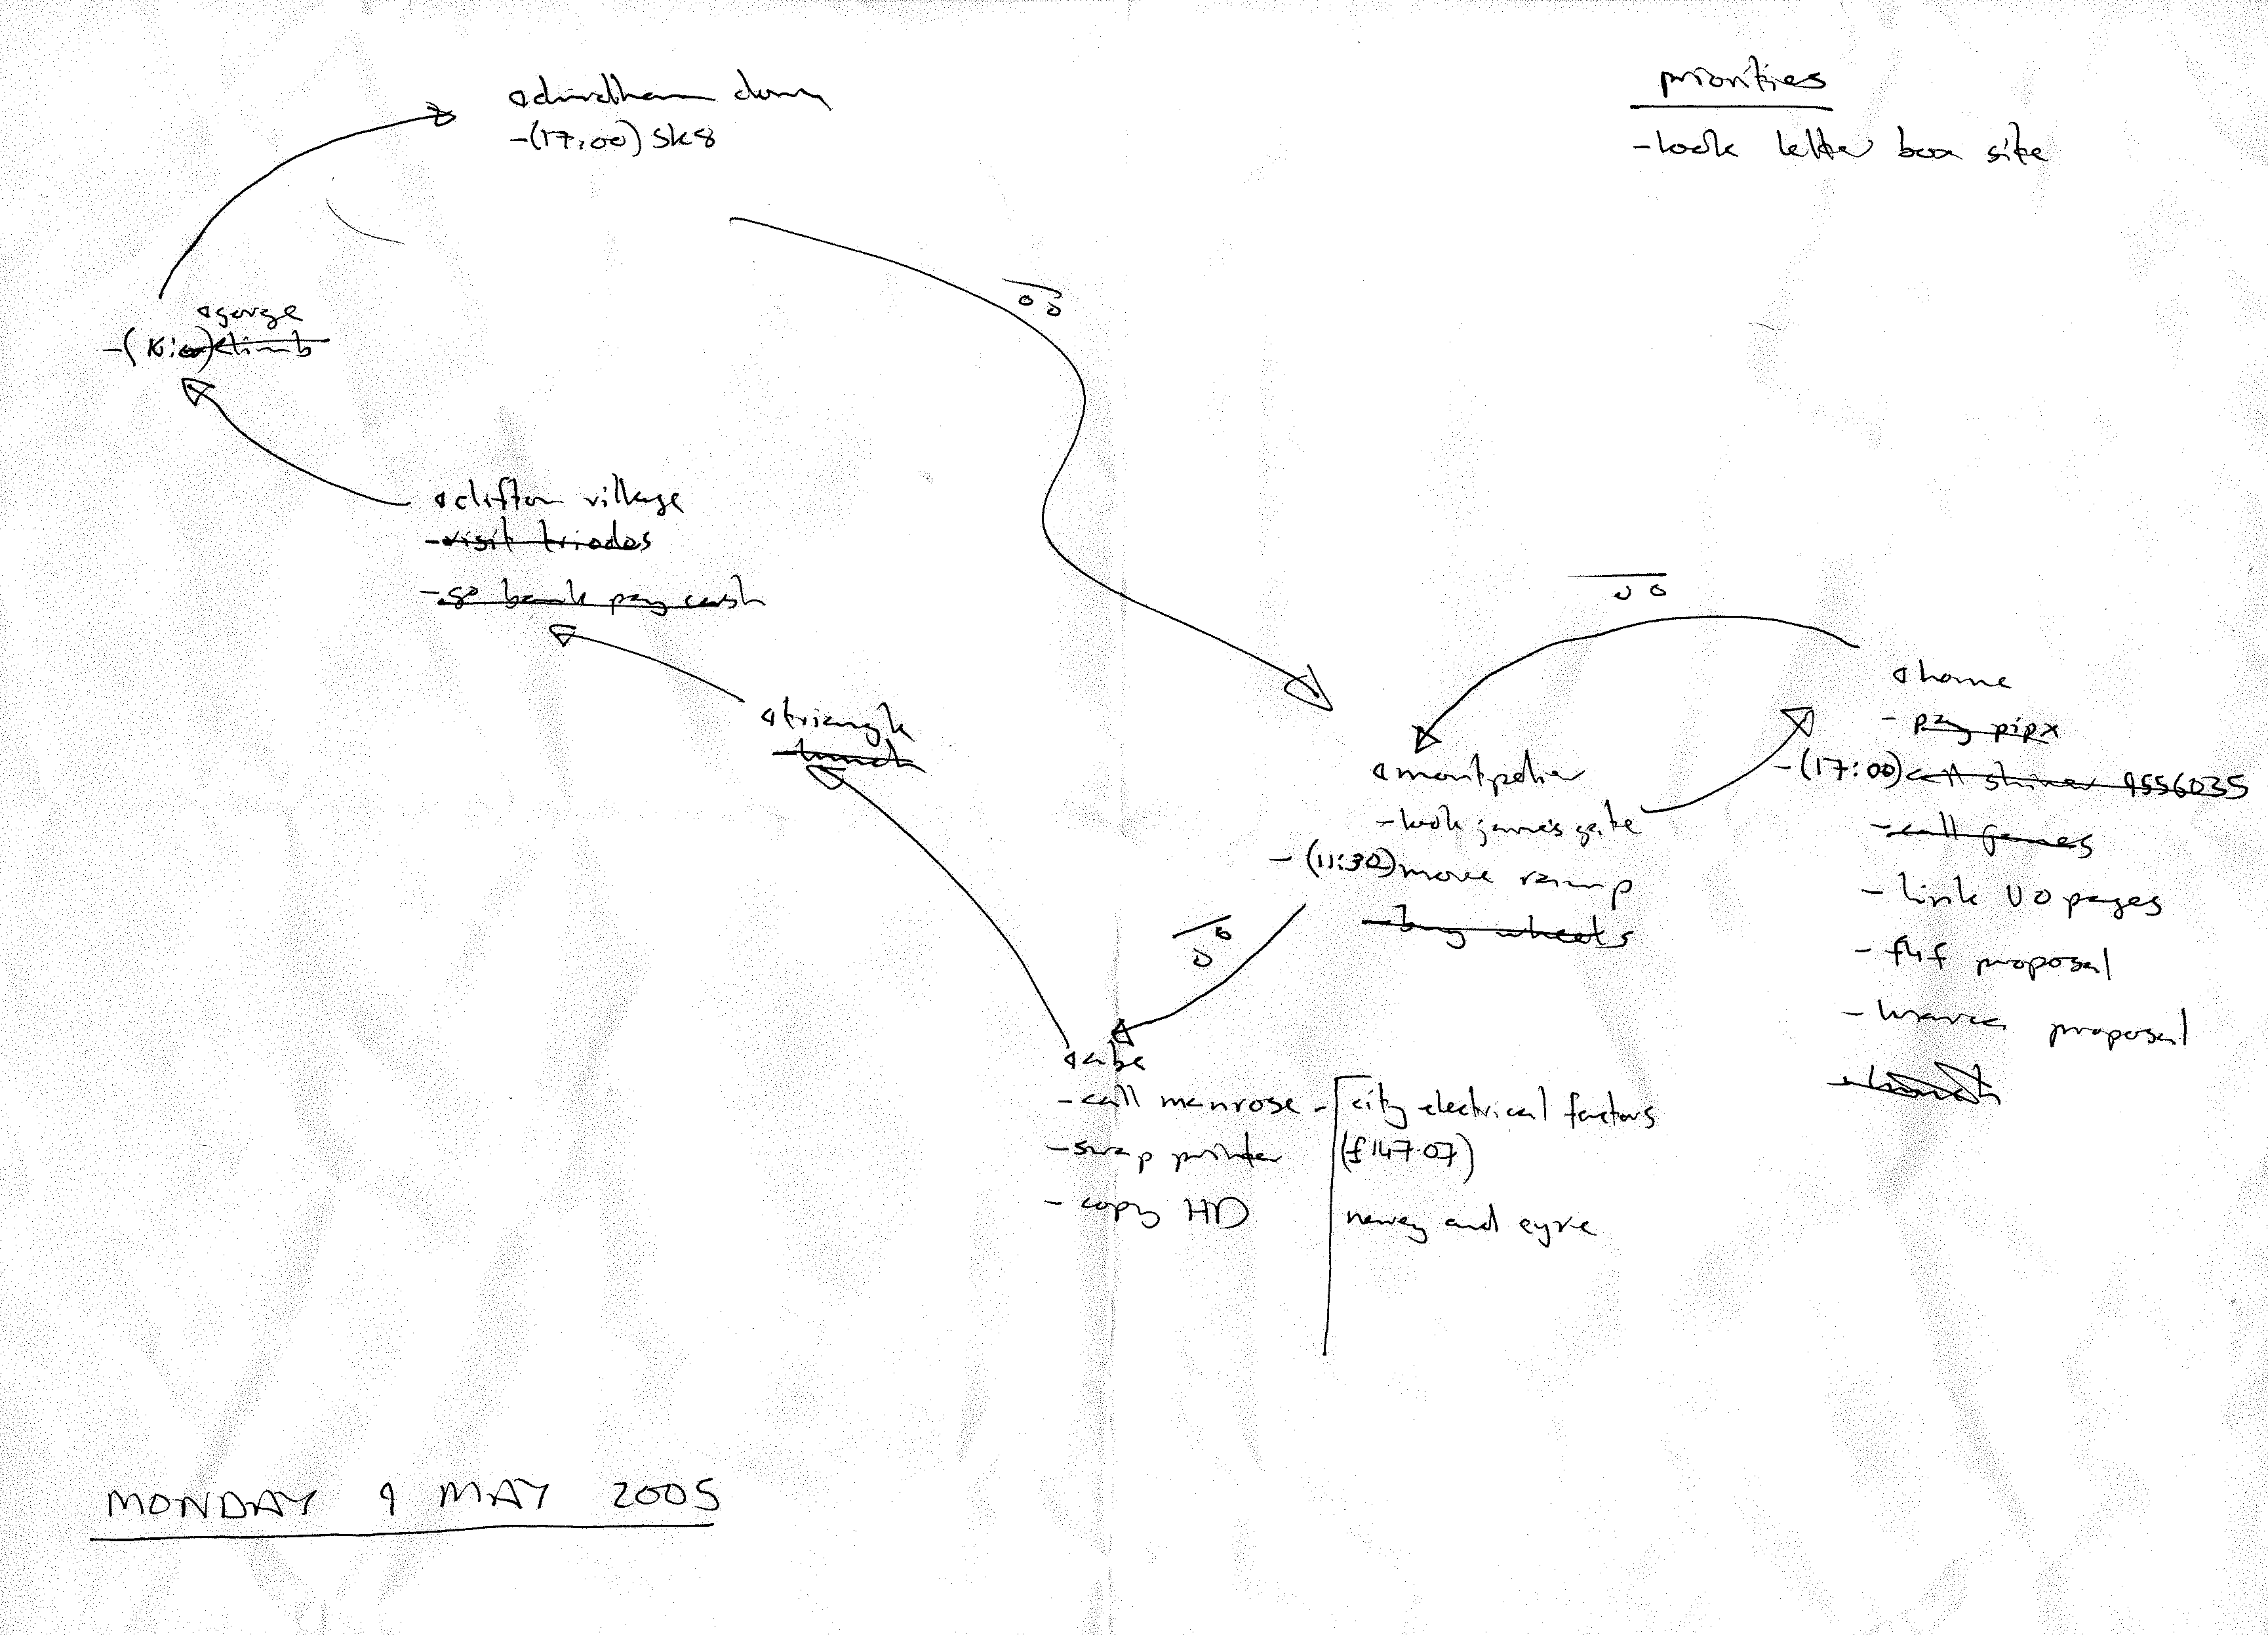 priorities
- look letter box site
durdham down
- (17:00) sk8
gorge
- (16:00) climb
clifton village
- visit triodos
- go bank pay cash
triangle
- lunch
home
- pay pipx
- (17:00) call shiner 9556035
- call james
- link UO pages
- f4f proposal
- proposal
- lunch
montpelier
- look james gate
- (11:30) move ramp
- buy wheels
cube
- call manrose - city electrical factors
- swap printer (£147.07)
- copy HD newey and eyre
MONDAY 9 MAY 2005